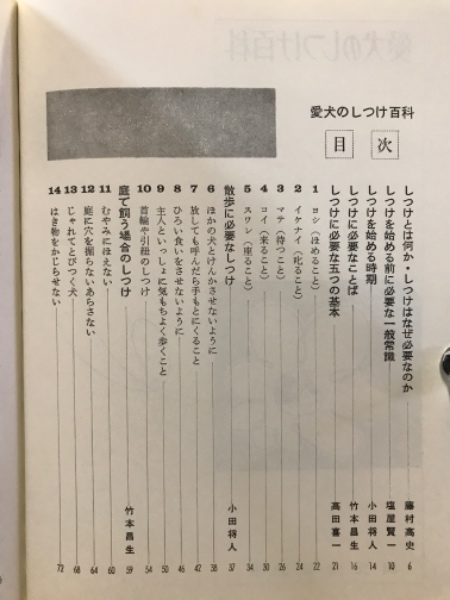 愛犬のしつけ百科
目次
しつけとは何か・しつけはなぜ必要なのか 藤村高史 6
しつけを始める前に必要な一般常識 塩屋賢一 10
しつけを始める時期 小田将人 14
しつけに必要なことば 竹本昌生 16
しつけに必要な五つの基本 高田喜一 21
1 ヨシ(ほめること) 22
2 イケナイ(叱ること) 24
3 マテ(待つこと) 26
4 コイ(来ること) 30
5 スワレ(座ること) 34
散歩に必要なしつけ 小田将人 37
6 ほかの犬とけんかさせないように 38
7 放しても呼んだら手もとにくること 42
8 ひろい食いをさせないように 46
9 主人といっしょに気もちよく歩くこと 50
10 首輪や引紐のしつけ 54
庭で飼う場合のしつけ 竹本昌生 59
11 むやみにほえない 60
12 庭に穴を掘らないあらさない 64
13 じゃれてとびつく犬 68
14 はき物をかじらせない 72